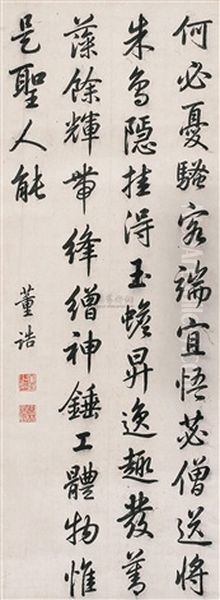 何必憂騷客端宜悟苾僧送將
朱鳥隱挂得玉蟾昇逸趣發蒼
藻餘輝帶絳繒神錘工體物惟
是聖人能
董誥